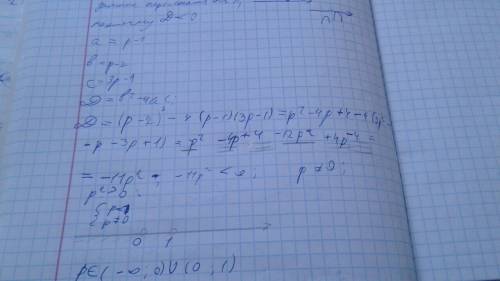 поэтому D < 0
a = p-1
b = p-2
c = 3p-1
D = b² - 4ac
D = (p-2)² - 4(p-1)(3p-1) = p² - 4p + 4 - 4(3p² -
- p - 3p + 1) = p² - 4p + 4 - 12p² + 4p - 4 =
= -11p² ; -11p² < 0 ; p ≠ 0 ;
p² > 0
{ p<1
{ p≠0
0 1
p∈(-∞, 0)∪(0, 1)